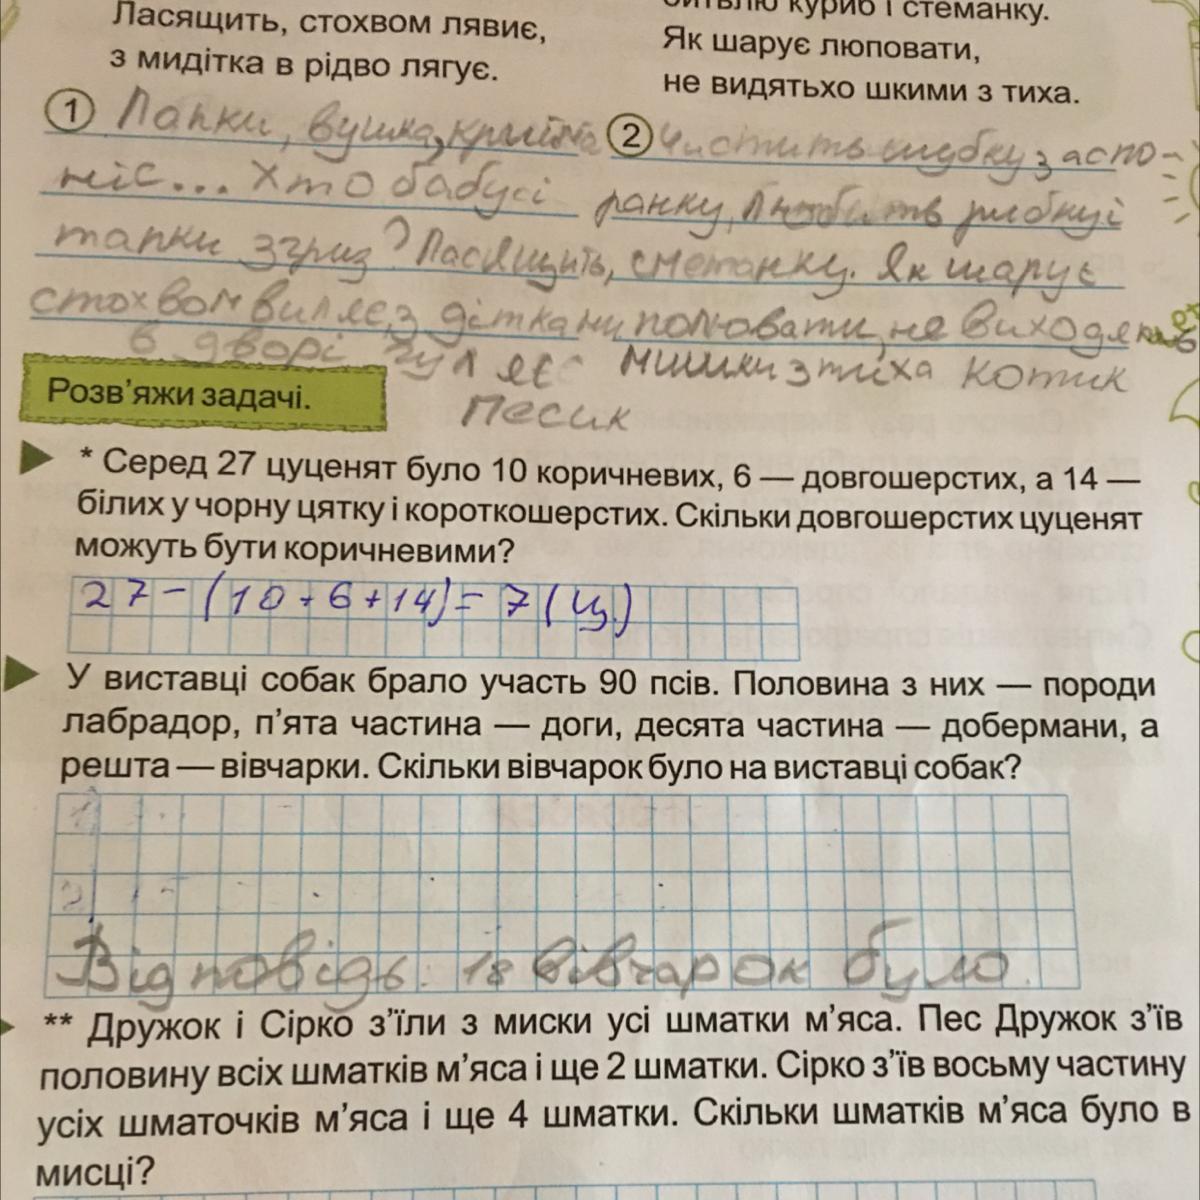 Ласящить, стохвом лявиє,
з мидітка в рідво лягує.
куриб і стеманку.
Як шарує люповати,
не видятьхо шкими з тиха.
1 Лапки, вушка,
ніс... Хто бабусі
тапки згриз? Ласящить,
стохвом виляє, з дітками
в дворі гуляє
Песик
2 Чистить шубку з аспо-
ранку, любить рибку і
сметанку. Як шарує
полювати, не виходять
мишки з тиха котик
Розв'яжи задачі.
* Серед 27 цуценят було 10 коричневих, 6 — довгошерстих, а 14 —
білих у чорну цятку і короткошерстих. Скільки довгошерстих цуценят
можуть бути коричневими?
27-(10+6+14)=7(ц.)
У виставці собак брало участь 90 псів. Половина з них — породи
лабрадор, п'ята частина — доги, десята частина — добермани, а
решта — вівчарки. Скільки вівчарок було на виставці собак?
Відповідь: 18 вівчарок було.
** Дружок і Сірко з'їли з миски усі шматки м'яса. Пес Дружок з'їв
половину всіх шматків м'яса і ще 2 шматки. Сірко з'їв восьму частину
усіх шматочків м'яса і ще 4 шматки. Скільки шматків м'яса було в
мисці?